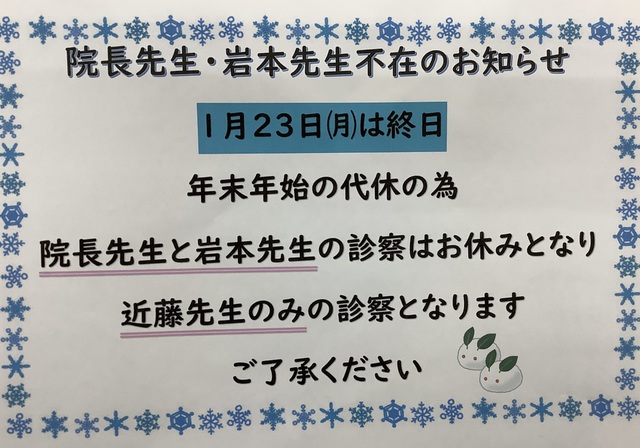 院長先生・岩本先生不在のお知らせ
1月23日㈪は終日
年末年始の代休の為
院長先生と岩本先生の診察はお休みとなり
近藤先生のみの診察となります
ご了承ください